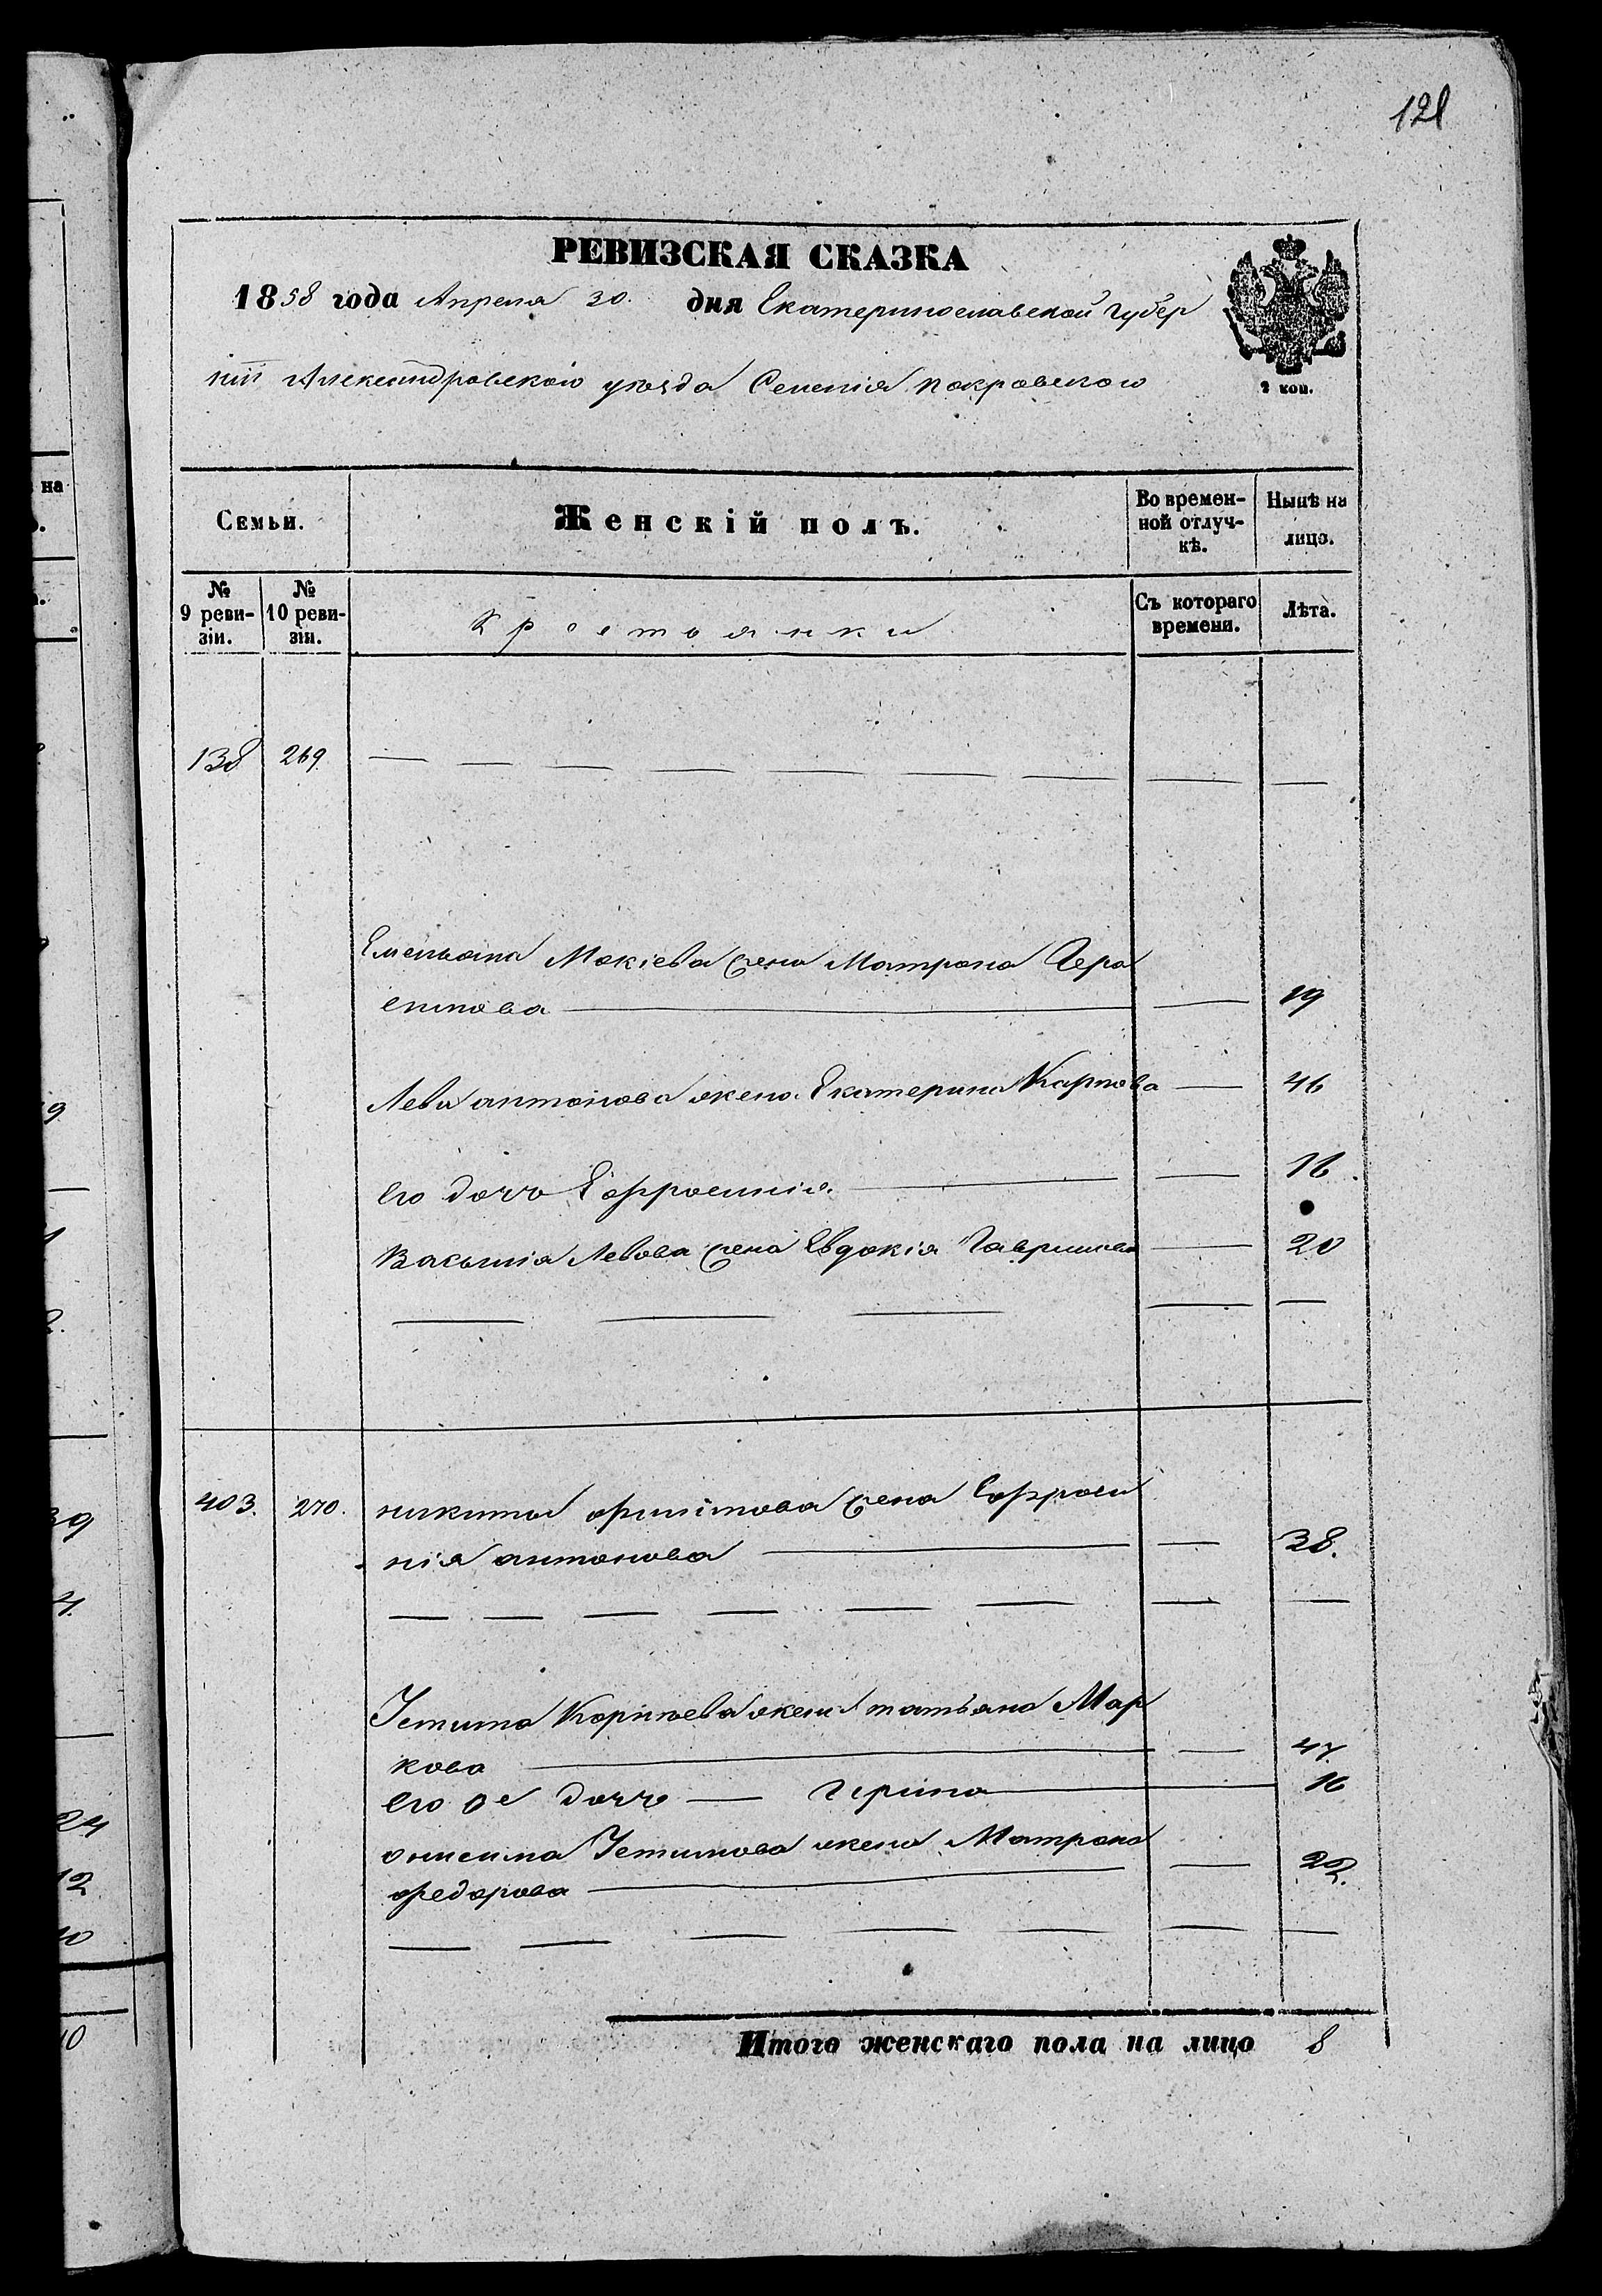 121
РЕВИЗСКАЯ СКАЗКА
1858 года Апреля 30. дня Екатеринославской губер
нiи Александровскаго уѣзда Селенiя покровского
2 коп.
Семьи. Женскій полъ. Во времен-ной отлуч-кѣ. Нынѣ на лицо.
№ 9 реви-зіи. № 10 реви-зіи. Крестьянки Съ котораго времени. Лѣта.
138 269 — — — — — — — — —
Емельяна Мокіева жена Матрона
— — 19
Лева антонова жена Екатерина Карпова — 46
его дочь Ефросинія — — 16.
Василія Левова жена Евдокія Гаврилова — 20
— — — — —
403. 270. никиты филипова жена Ефроси
нія антонова — — 38.
— — — — — — — —
Устина Корнѣева жена татьяна Мар
кова — — 47.
его же дочь — Ирина — 16
онисима Устинова жена Матрона
федорова — — 22.
— — — — — — —
Итого женскаго пола на лицо 8
на
9
39
4.
24
12
10
10